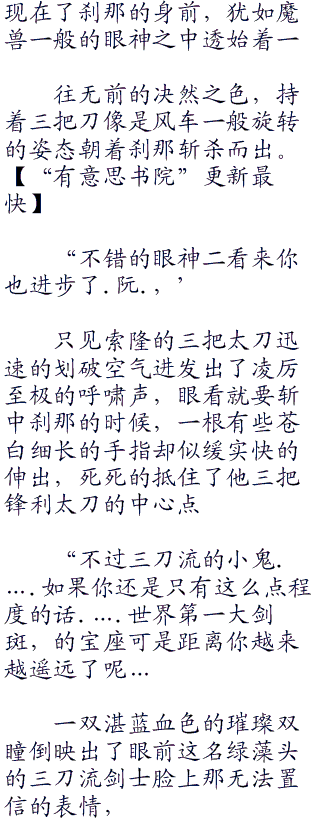 现在了刹那的身前，犹如魔
兽一般的眼神之中透始着一
往无前的决然之色，持
着三把刀像是风车一般旋转
的姿态朝着刹那斩杀而出。
【“有意思书院”更新最
快】
“不错的眼神二看来你
也进步了.阮.，’
只见索隆的三把太刀迅
速的划破空气迸发出了凌厉
至极的呼啸声，眼看就要斩
中刹那的时候，一根有些苍
白细长的手指却似缓实快的
伸出，死死的抵住了他三把
锋利太刀的中心点
“不过三刀流的小鬼.
….如果你还是只有这么点程
度的话.….世界第一大剑
斑，的宝座可是距离你越来
越遥远了呢…
一双湛蓝血色的璀璨双
瞳倒映出了眼前这名绿藻头
的三刀流剑士脸上那无法置
信的表情，